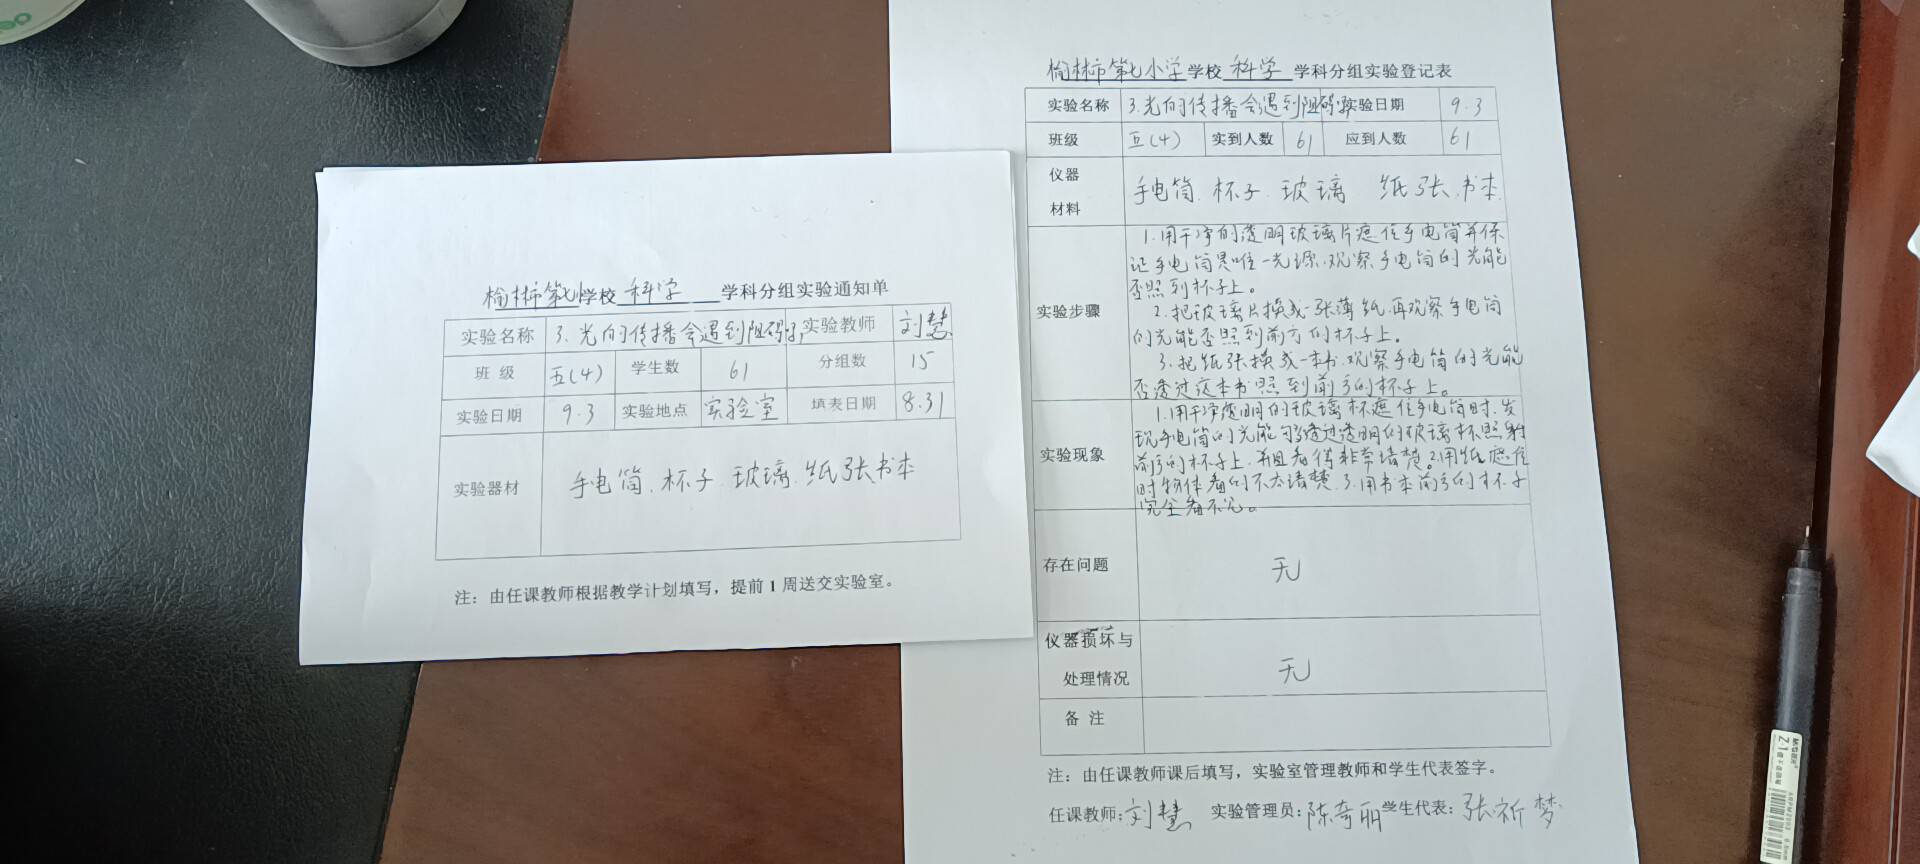 榆林市第七小学校 科学 学科分组实验通知单
实验名称 3.光的传播会遇到阻碍吗 实验教师 刘慧
班 级 五(4) 学生数 61 分组数 15
实验日期 9.3 实验地点 实验室 填表日期 8.31
实验器材 手电筒、杯子、玻璃、纸张书本
注：由任课教师根据教学计划填写，提前 1 周送交实验室。
榆林市第七小学学校 科学 学科分组实验登记表
实验名称 3.光的传播会遇到阻碍吗 实验日期 9.3
班级 五(4) 实到人数 61 应到人数 61
仪器
材料
手电筒、杯子、玻璃 纸张、书本
实验步骤
1.用干净的透明玻璃片遮住手电筒并保
证手电筒是唯一光源.观察手电筒的光能
否照到杯子上。
2.把玻璃片换成一张薄纸.再观察手电筒
的光能否照到前方的杯子上。
3.把纸张换成一本书.观察手电筒的光能
否透过这本书照到前方的杯子上。
实验现象
1.用干净透明的玻璃杯遮住手电筒时.发
现手电筒的光能够透过透明的玻璃杯照射
前方的杯子上.并且看得非常清楚。2.用纸遮住
时物体看的不太清楚.3.用书本前方的杯子
完全看不见。
存在问题 无
仪器损坏与
处理情况
无
备 注
注：由任课教师课后填写，实验室管理教师和学生代表签字。
任课教师：刘慧 实验管理员：陈奇丽 学生代表：张祈梦
M&G
Z.1